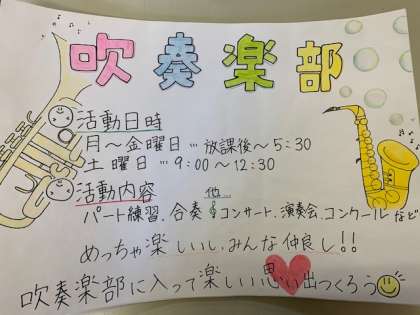 吹奏楽部
活動日時
月〜金曜日…放課後〜5:30
土曜日…9:00〜12:30
活動内容 他…
パート練習、合奏 コンサート、演奏会、コンクール など
めっちゃ楽しいし、みんな仲良し!!
吹奏楽部に入って楽しい思い出つくろう